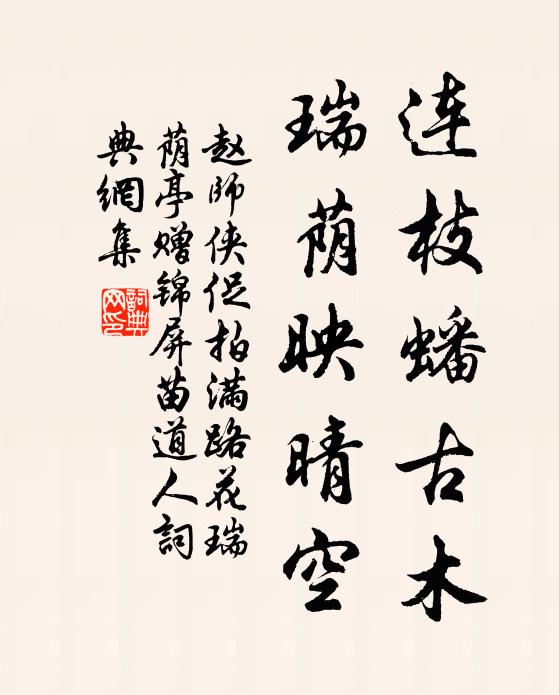 连枝蟠古木
瑞荫映晴空
赵师侠促拍满路花瑞
荫亭赠锦屏苗道人词
典網集
詞典
网印